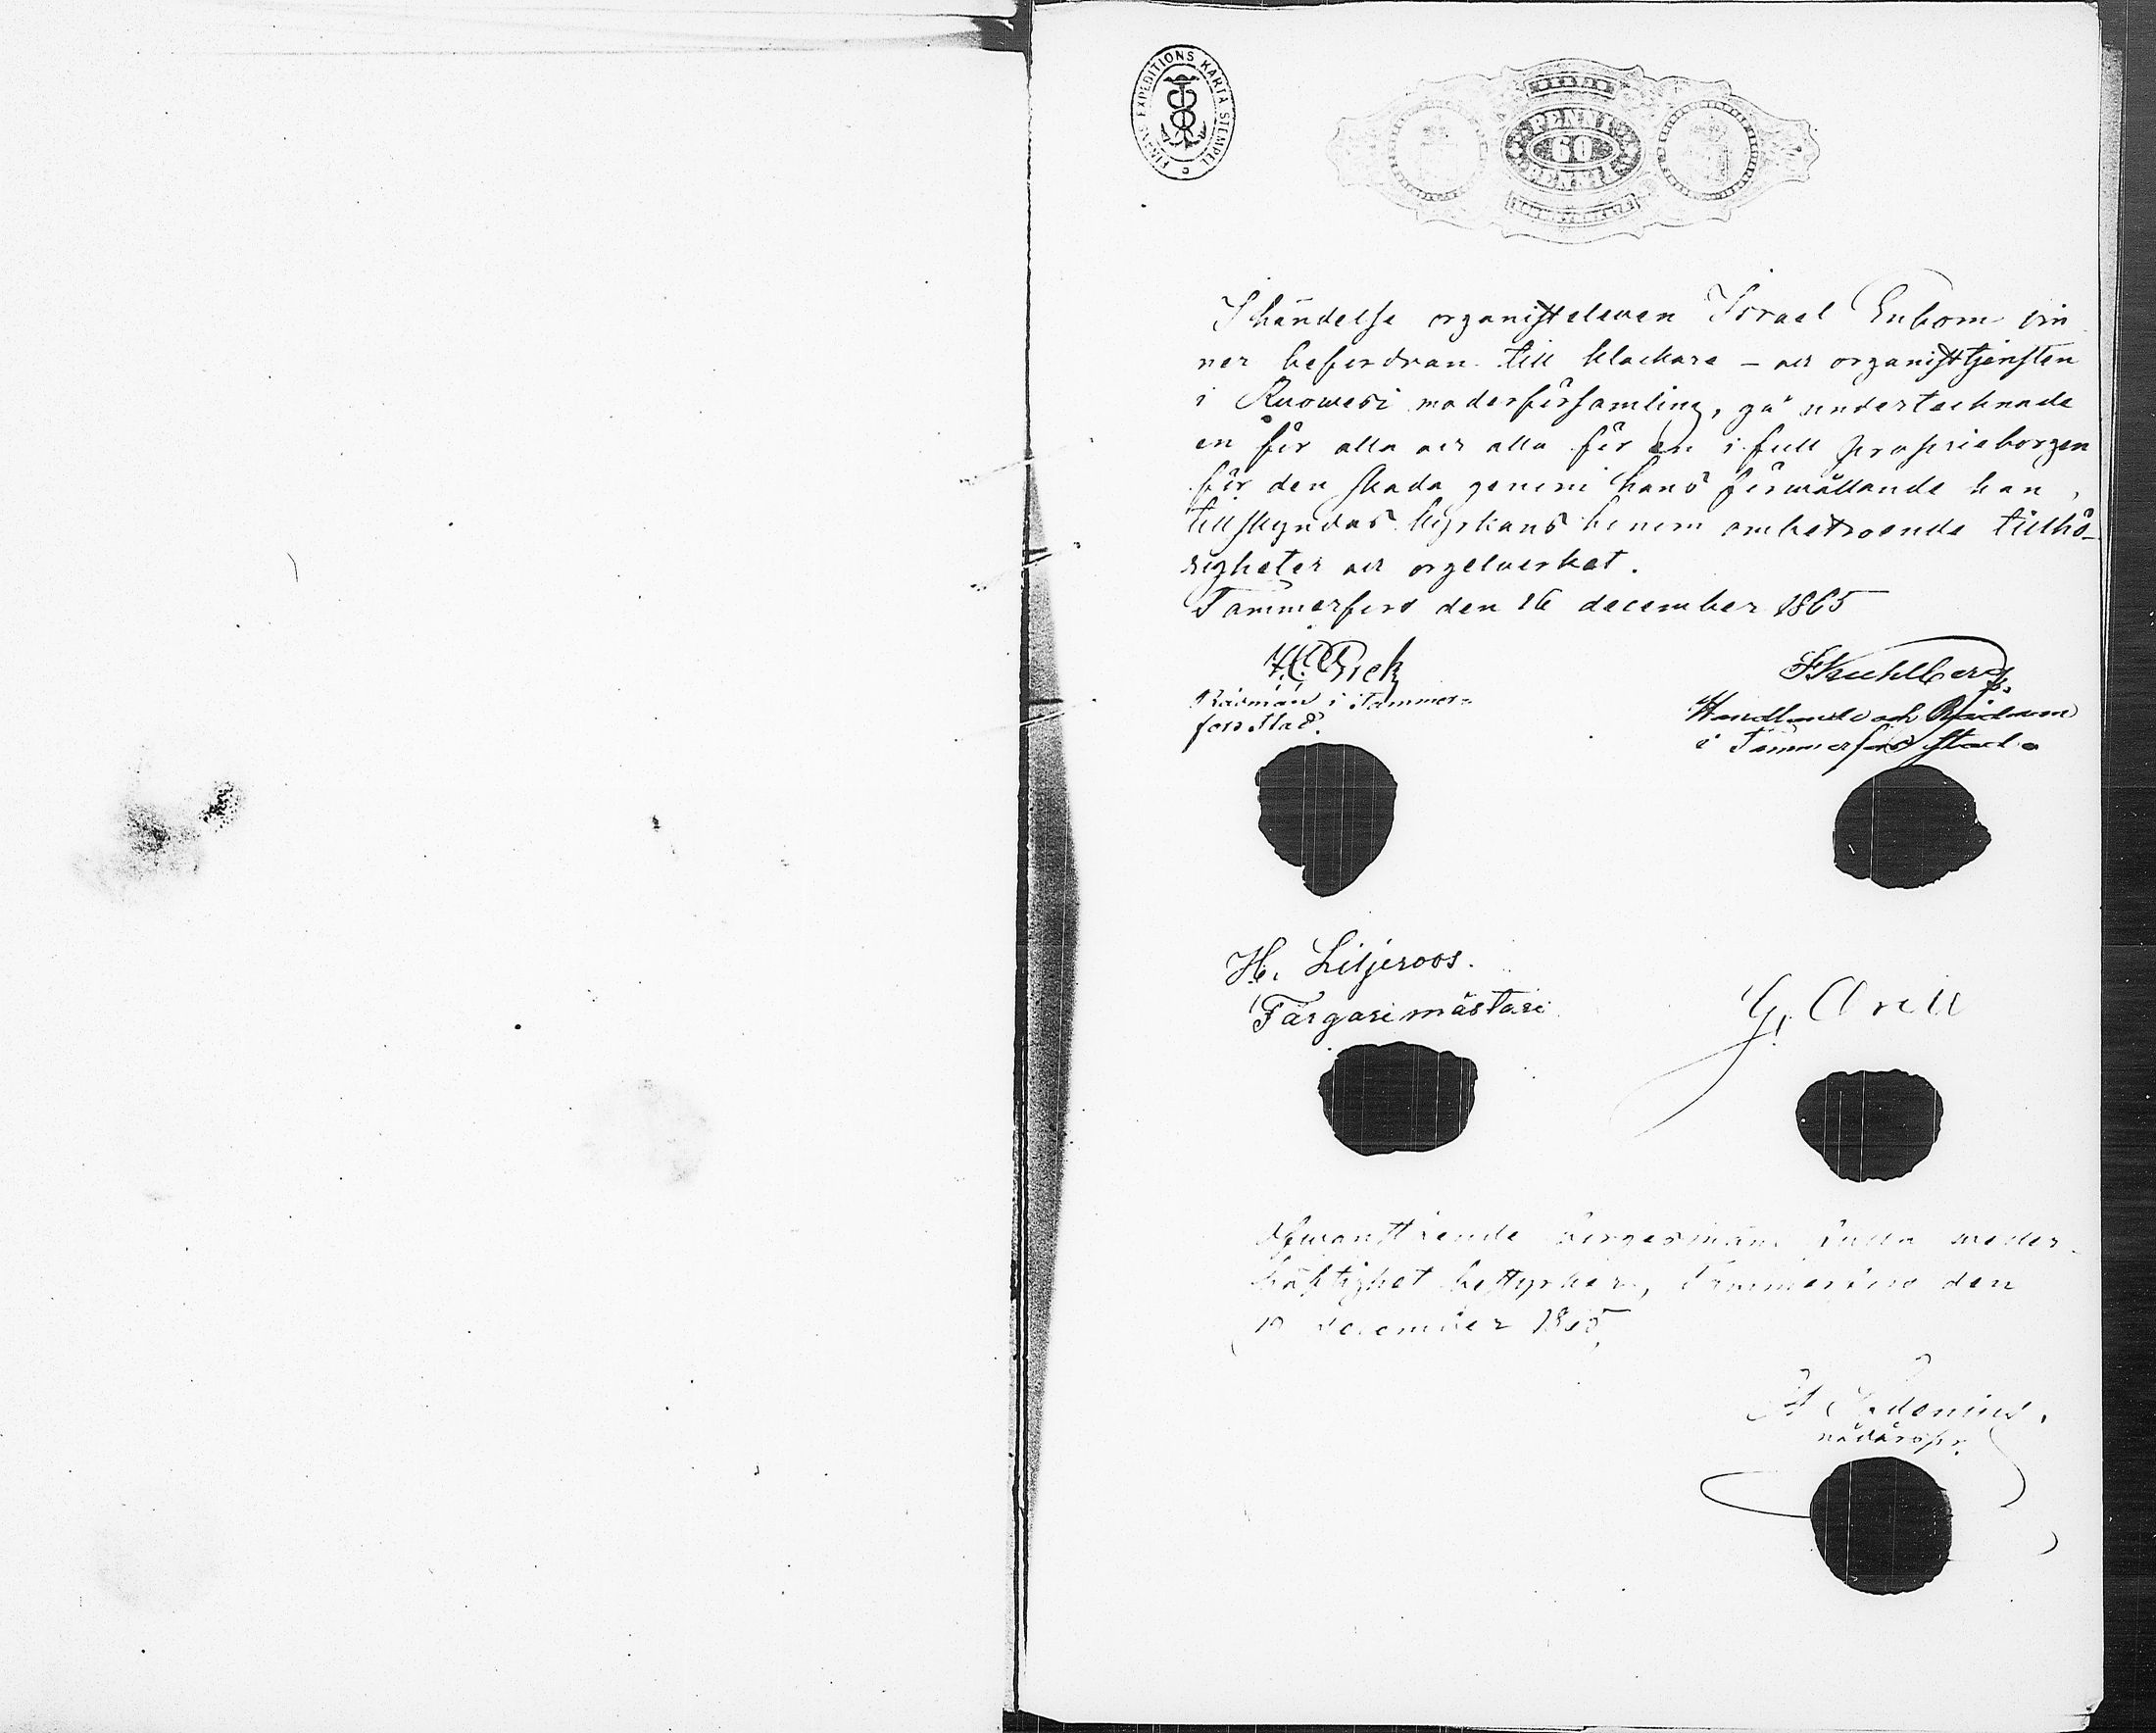 FINSKT EXPEDITIONS KARTA STEMPEL
PENNI
60
PENNIÄ
I händelse organisteleven Israel Enbom vin
ner befordran till klockare- och organisttjensten
i Ruowesi moderförsamling, gå undertecknade
en för alla och alla för en i full proprieborgen
för den skada genom hans förwållande kan
tillskyndas kyrkans honom ombetroende tillhö-
righeter och orgelverket.
Tammerfors den 16 december 1865
Rådman i Tammer-
fors stad.
F Kuhlberg
Handlande och Rådman
i Tammerfors stad
H. Liljeroos.
Färgaremästare
G. Orell
Ofwanstående borgesmäns fulla weder-
häftighet bestyrker, Tammerfors den
december 1865,
rådårspr.